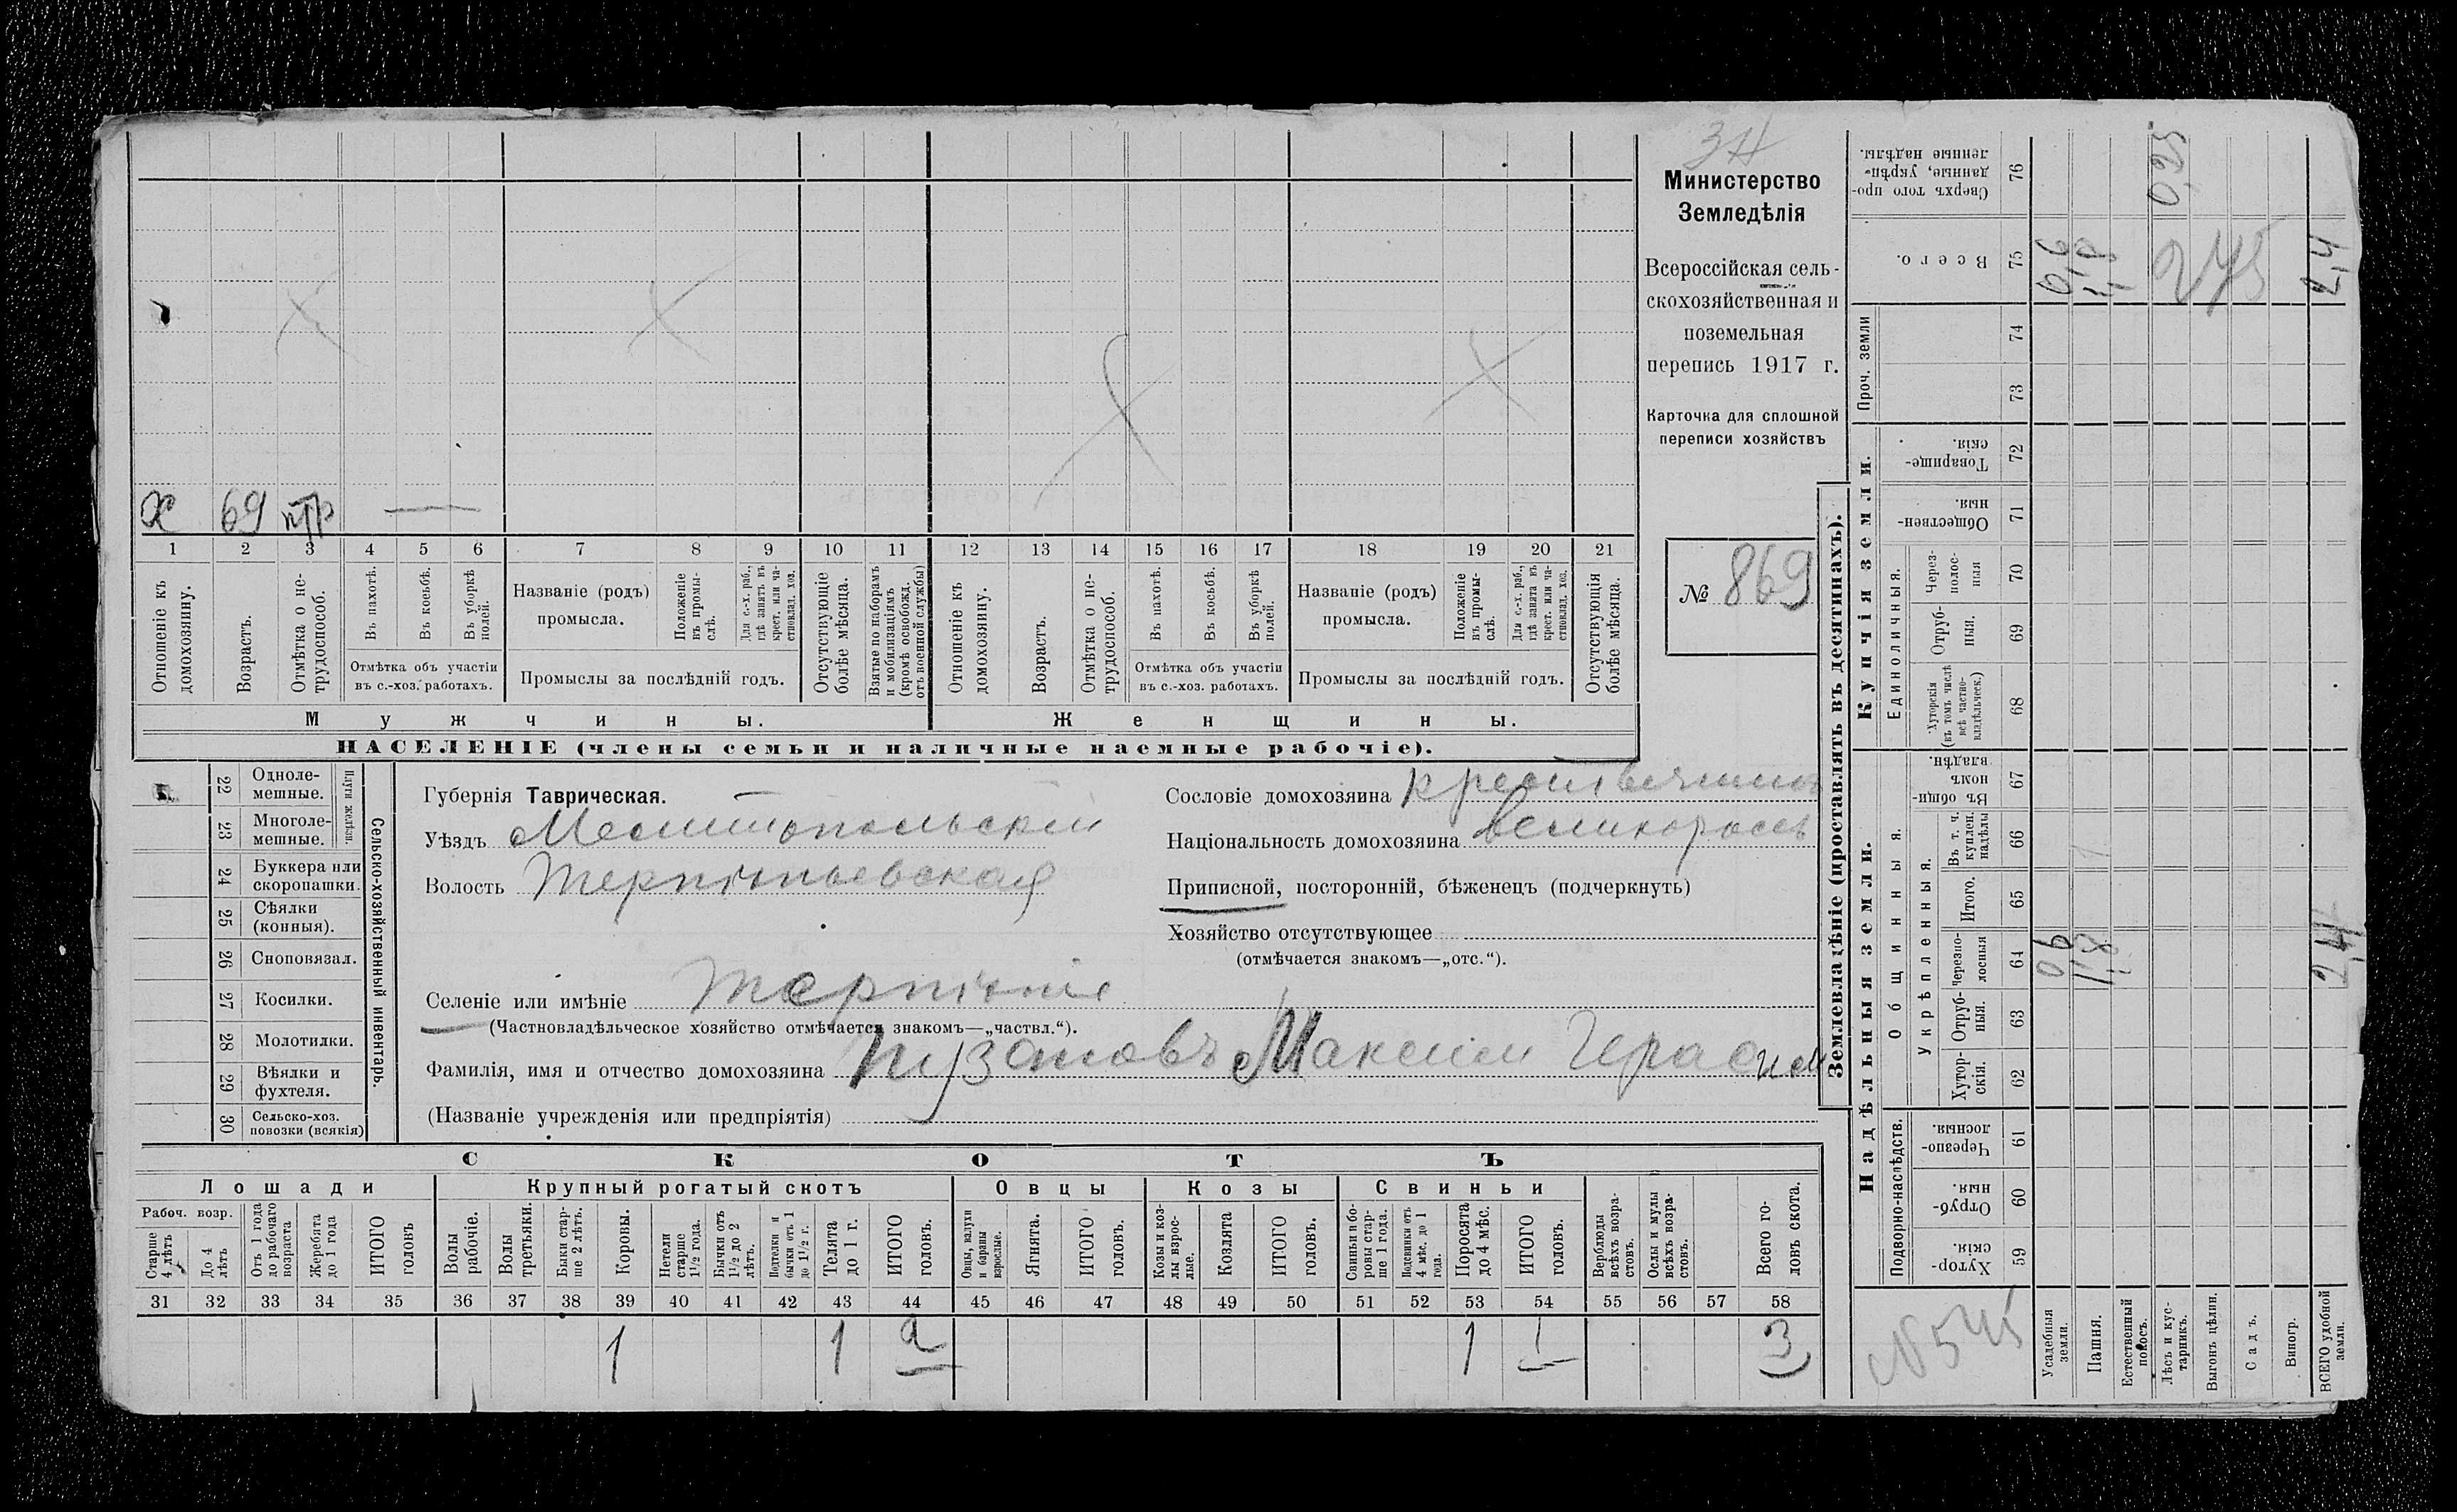 ЗН
Министерство
Земледѣлія
Всероссійская сель-
скохозяйственная и
поземельная
перепись 1917 г.
Карточка для сплошной
переписи хозяйствъ
№ 869
х 69 нтр —
1 2 3 4 5 6 7 8 9 10 11 12 13 14 15 16 17 18 19 20 21
Отношеніе къ домохозяину.
Возрастъ.
Отмѣтка о не-трудоспособ.
Въ пахотѣ.
Въ косьбѣ.
Въ уборкѣ полей.
Отмѣтка объ участіи
въ с.-хоз. работахъ.
Названіе (родъ)
промысла.
Положеніе въ промы-слѣ.
Для с.-х. раб., гдѣ занятъ въ крест. или ча-стновлад. хоз.
Промыслы за послѣдній годъ.
Отсутствующіе болѣе мѣсяца.
Взятые по наборамъ и мобилизаціямъ (кромѣ освобожд. отъ военной службы)
Отношеніе къ домохозяину.
Возрастъ.
Отмѣтка о не-трудоспособ.
Въ пахотѣ.
Въ косьбѣ.
Въ уборкѣ полей.
Отмѣтка объ участіи
въ с.-хоз. работахъ.
Названіе (родъ)
промысла.
Положеніе въ промы-слѣ.
Для с.-х. раб., гдѣ занята въ крест. или ча-стновлад. хоз.
Промыслы за послѣдній годъ.
Отсутствующія болѣе мѣсяца.
Мужчины.
Женщины.
НАСЕЛЕНІЕ (члены семьи и наличные наемные рабочіе).
22 Одноле-мешные.
23 Многоле-мешные.
Плуги желѣзн.
24 Буккера или скоропашки.
25 Сѣялки (конныя).
26 Сноповязал.
27 Косилки.
28 Молотилки.
29 Вѣялки и фухтеля.
30 Сельско-хоз. повозки (всякія)
Сельско-хозяйственный инвентарь.
Губернія Таврическая.
Уѣздъ Мелитопольскій
Волость Терпѣньевская
Селеніе или имѣніе Терпѣніе
(Частновладѣльческое хозяйство отмѣчается знакомъ—„частвл.“).
Фамилія, имя и отчество домохозяина Пузановъ Максим Герасим
(Названіе учрежденія или предпріятія)
Сословіе домохозяина крестьянинъ
Національность домохозяина великороссъ
Приписной, посторонній, бѣженецъ (подчеркнуть)
Хозяйство отсутствующее
(отмѣчается знакомъ—„отс.“).
СКОТЪ
Лошади
Крупный рогатый скотъ
Овцы
Козы
Свиньи
Рабоч. возр.
Старше 4 лѣтъ
До 4 лѣтъ
Отъ 1 года до рабочаго возраста
Жеребята до 1 года
ИТОГО головъ
Волы рабочіе.
Волы третьяки.
Быки стар-ше 2 лѣтъ.
Коровы.
Нетели старше 1½ года.
Бычки отъ 1½ до 2 лѣтъ.
Подтелки и бычки отъ 1 до 1½ г.
Телята до 1 г.
ИТОГО головъ.
Овцы, валухи и бараны взрослые.
Ягнята.
ИТОГО головъ.
Козы и коз-лы взрос-лые.
Козлята
ИТОГО головъ.
Свиньи и бо-ровы стар-ше 1 года.
Подсвинки отъ 4 мѣс. до 1 года.
Поросята до 4 мѣс.
ИТОГО головъ.
Верблюды всѣхъ возра-стовъ.
Ослы и мулы всѣхъ возра-стовъ.
Всего го-ловъ скота.
31 32 33 34 35 36 37 38 39 40 41 42 43 44 45 46 47 48 49 50 51 52 53 54 55 56 57 58
1 1 2 1 1 3
Землевладѣніе (проставлять въ десятинахъ).
Купчія земли.
Надѣльныя земли.
Сверхъ того про-данные, укрѣп-ленные надѣлы. 76
Всего. 75
Проч. земли
74
73
Товарище-скія. 72
Обществен-ныя 71
Единоличныя.
Через-полос-ныя 70
Отруб-ныя. 69
Хуторскія (въ томъ числѣ всѣ частно-владѣльческ.) 68
Общинныя.
Въ общи-номъ владѣн. 67
Укрѣпленныя.
Въ т. ч. куплен. надѣлы 66
Итого. 65
Черезпо-лосныя 64
Отруб-ныя. 63
Хутор-скія. 62
Подворно-наслѣдств.
Черезпо-лосныя. 61
Отруб-ныя. 60
Хутор-скія. 59
Усадебныя земли.
Пашня.
Естественный покосъ.
Лѣсъ и кус-тарникъ.
Выгонъ цѣлин.
Садъ.
Виногр.
ВСЕГО удобной земли.
0,95
0,6
1,8
275
2,4
0,6
1,8
2,4
№545